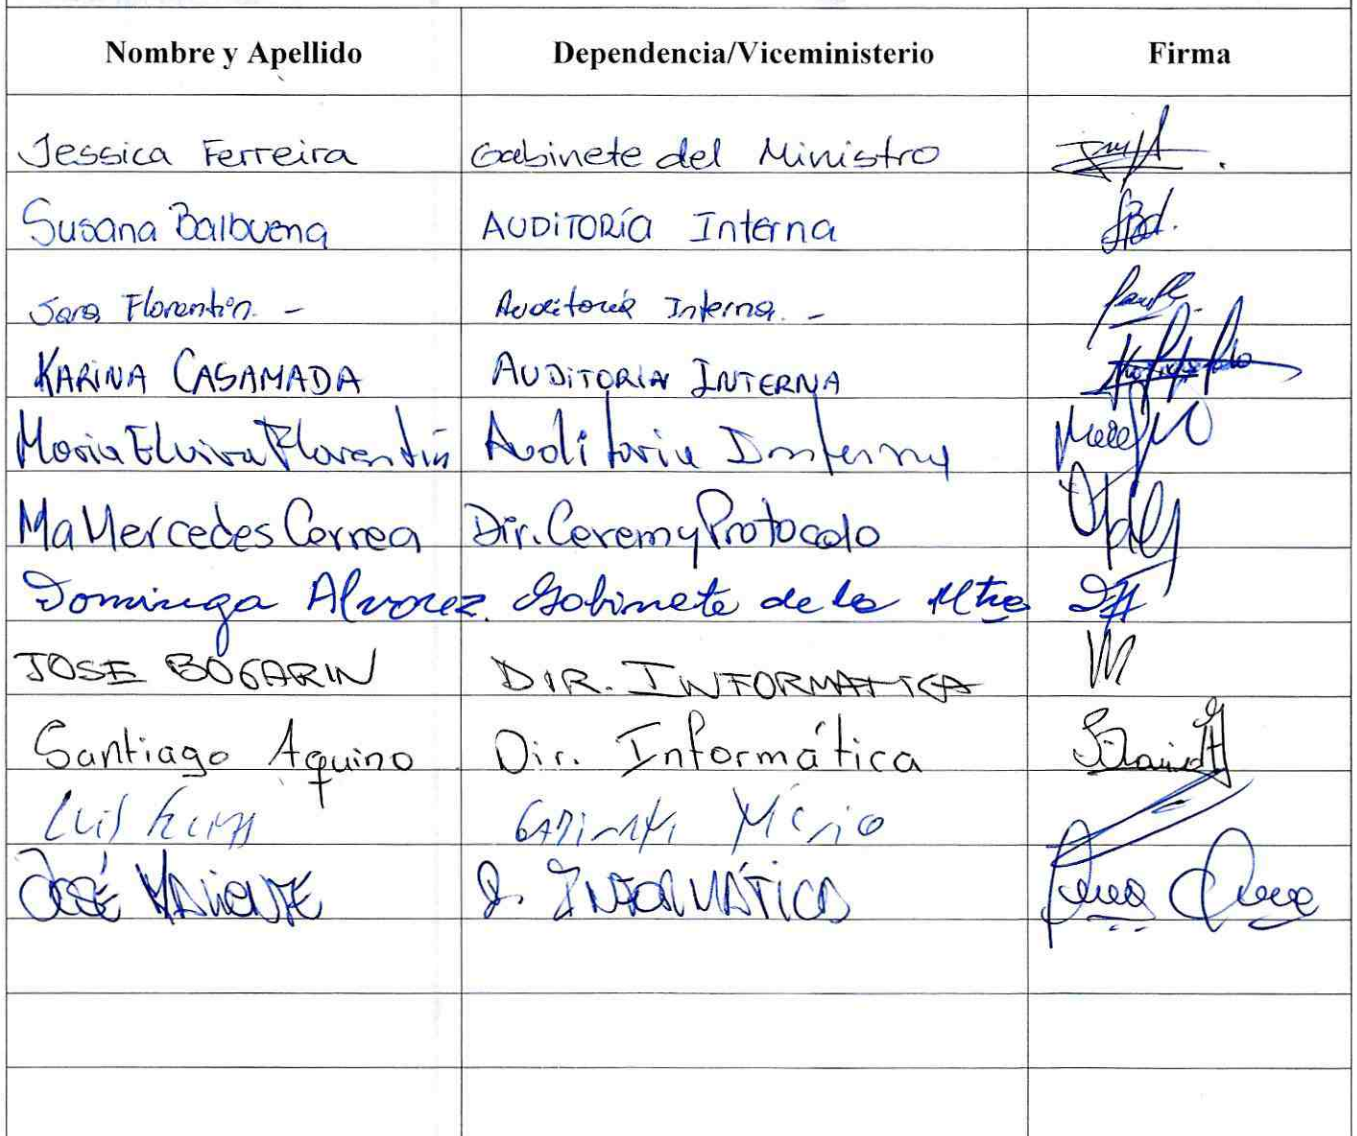 Nombre y Apellido Dependencia/Viceministerio Firma
Jessica Ferreira Gabinete del Ministro
Susana Balbuena AUDITORÍA Interna
Sara Florentín. - Auditoría Interna. -
KARINA CASAMADA AUDITORIA INTERNA
Maria Elvira Florentín Auditoria Interna
Ma Mercedes Correa Dir. Cerem y Protocolo
Dominga Alvarez. Gabinete de la Mtra
JOSE BOGARIN DIR. INFORMATICA
Santiago Aquino Dir. Informática
Luis
JOSÉ D. INFORMÁTICA